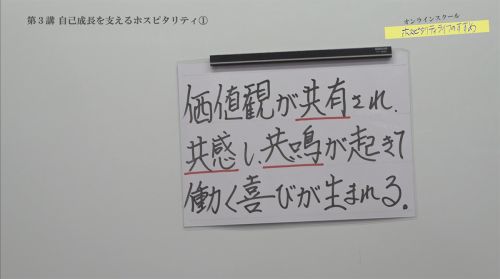 第3講 自己成長を支えるホスピタリティ①
オンラインスクール
ホスピタリティライフのすすめ
価値観が共有され、
共感し、共鳴が起きて
働く喜びが生まれる。